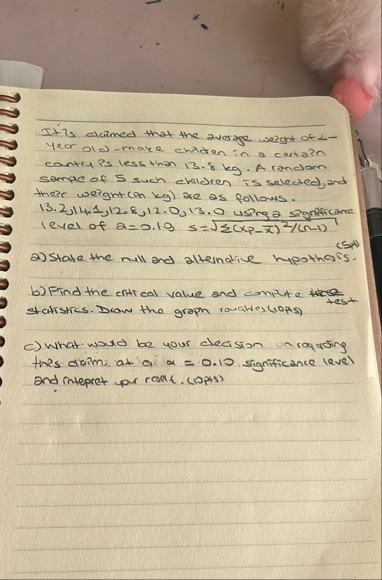 It is claimed that the average weight of 2-
year old-make children in a certain
cantry is less than 13.8 kg. A random
sample of 5 such children is selected, and
their weight (in kg) are as follows.
13.2, 14.1, 12.8, 12.0, 13.0 using a significance
level of a=0.10 s=√Σ(xi-x̄)²/(n-1)
(5pt)
a) State the null and alternative hypothesis.
b) Find the critical value and compute test
statistics. Draw the graph (10pts)
c) What would be your decision regarding
this claim, at α = 0.10 significance level
and intepret your result. (10pts)